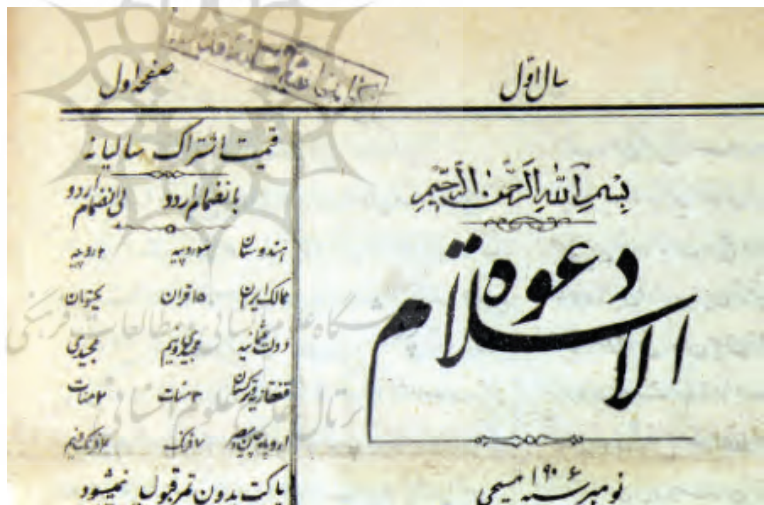 سال اول
صفحه اول
بسم الله الرحمن الرحیم
دعوة الاسلام
نومبر سنه ۱۹۰۶ مسیحی
قیمت اشتراک سالیانه
بانضمام اردو بی انضمام اردو
هندوستان ۳ روپیه ۲ روپیه
ممالک ایران ۱۵ قران یکتومان
دولت عثمانیه مجیدی و نیم مجیدی
قفقازیه ترکستان ۳ منات ۲ منات
۷ فرنک
پاکت بدون تمر قبول نمیشود